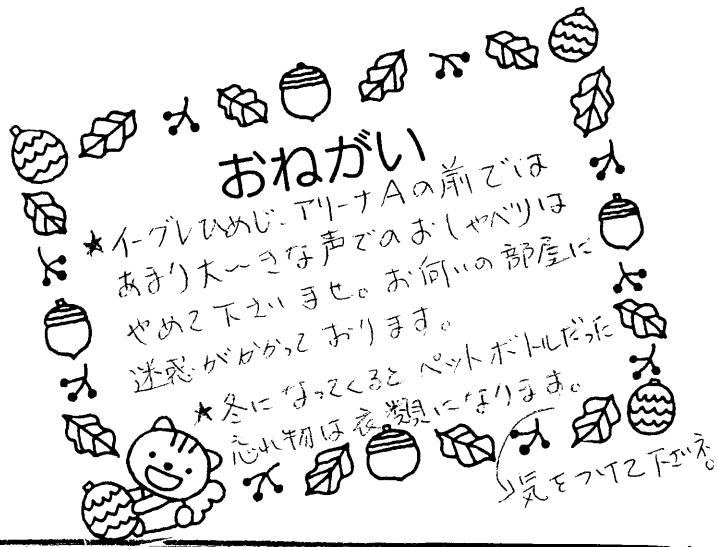 おねがい
★イーグレひめじ、アリーナAの前では
あまり大〜きな声でのおしゃべりは
やめて下さいませ。お向いの部屋に
迷惑がかかっております。
★冬になってくるとペットボトルだった
忘れ物は衣類になります。
気をつけて下さいネ。